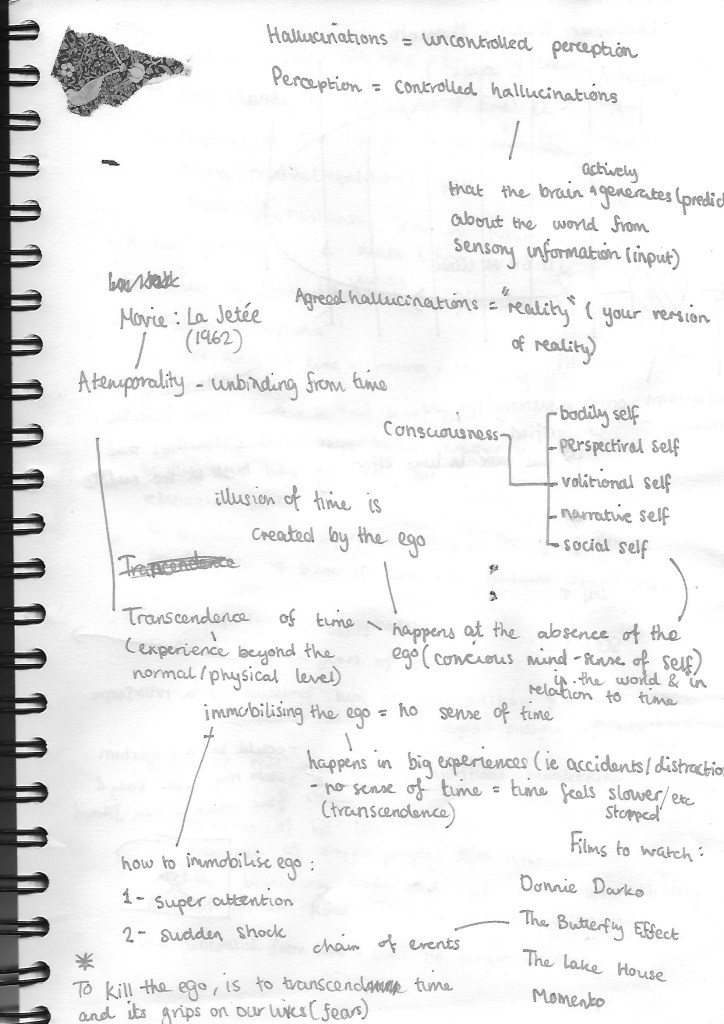 Hallucinations = uncontrolled perception
Perception = controlled hallucinations
actively
that the brain generates (predic
about the world from
sensory information (input)
Agreed hallucinations = "reality" ( your version
of reality)
Movie : La Jetée
(1962)
Atemporality - unbinding from time
Consciousness
- bodily self
- perspectival self
- volitional self
- narrative self
- social self
illusion of time is
created by the ego
Trancendence
Transcendence of time
(experience beyond the
normal/physical level)
happens at the absence of the
ego (concious mind - sense of self)
in the world & in
relation to time
immobilising the ego = no sense of time
happens in big experiences (ie accidents/distraction
- no sense of time = time feels slower/etc
stopped
(transcendence)
how to immobilise ego :
1 - super attention
2 - sudden shock
Films to watch :
Donnie Darko
chain of events
The Butterfly Effect
The Lake House
Momento
* To kill the ego, is to transcend time
and its grips on our lives (fears)